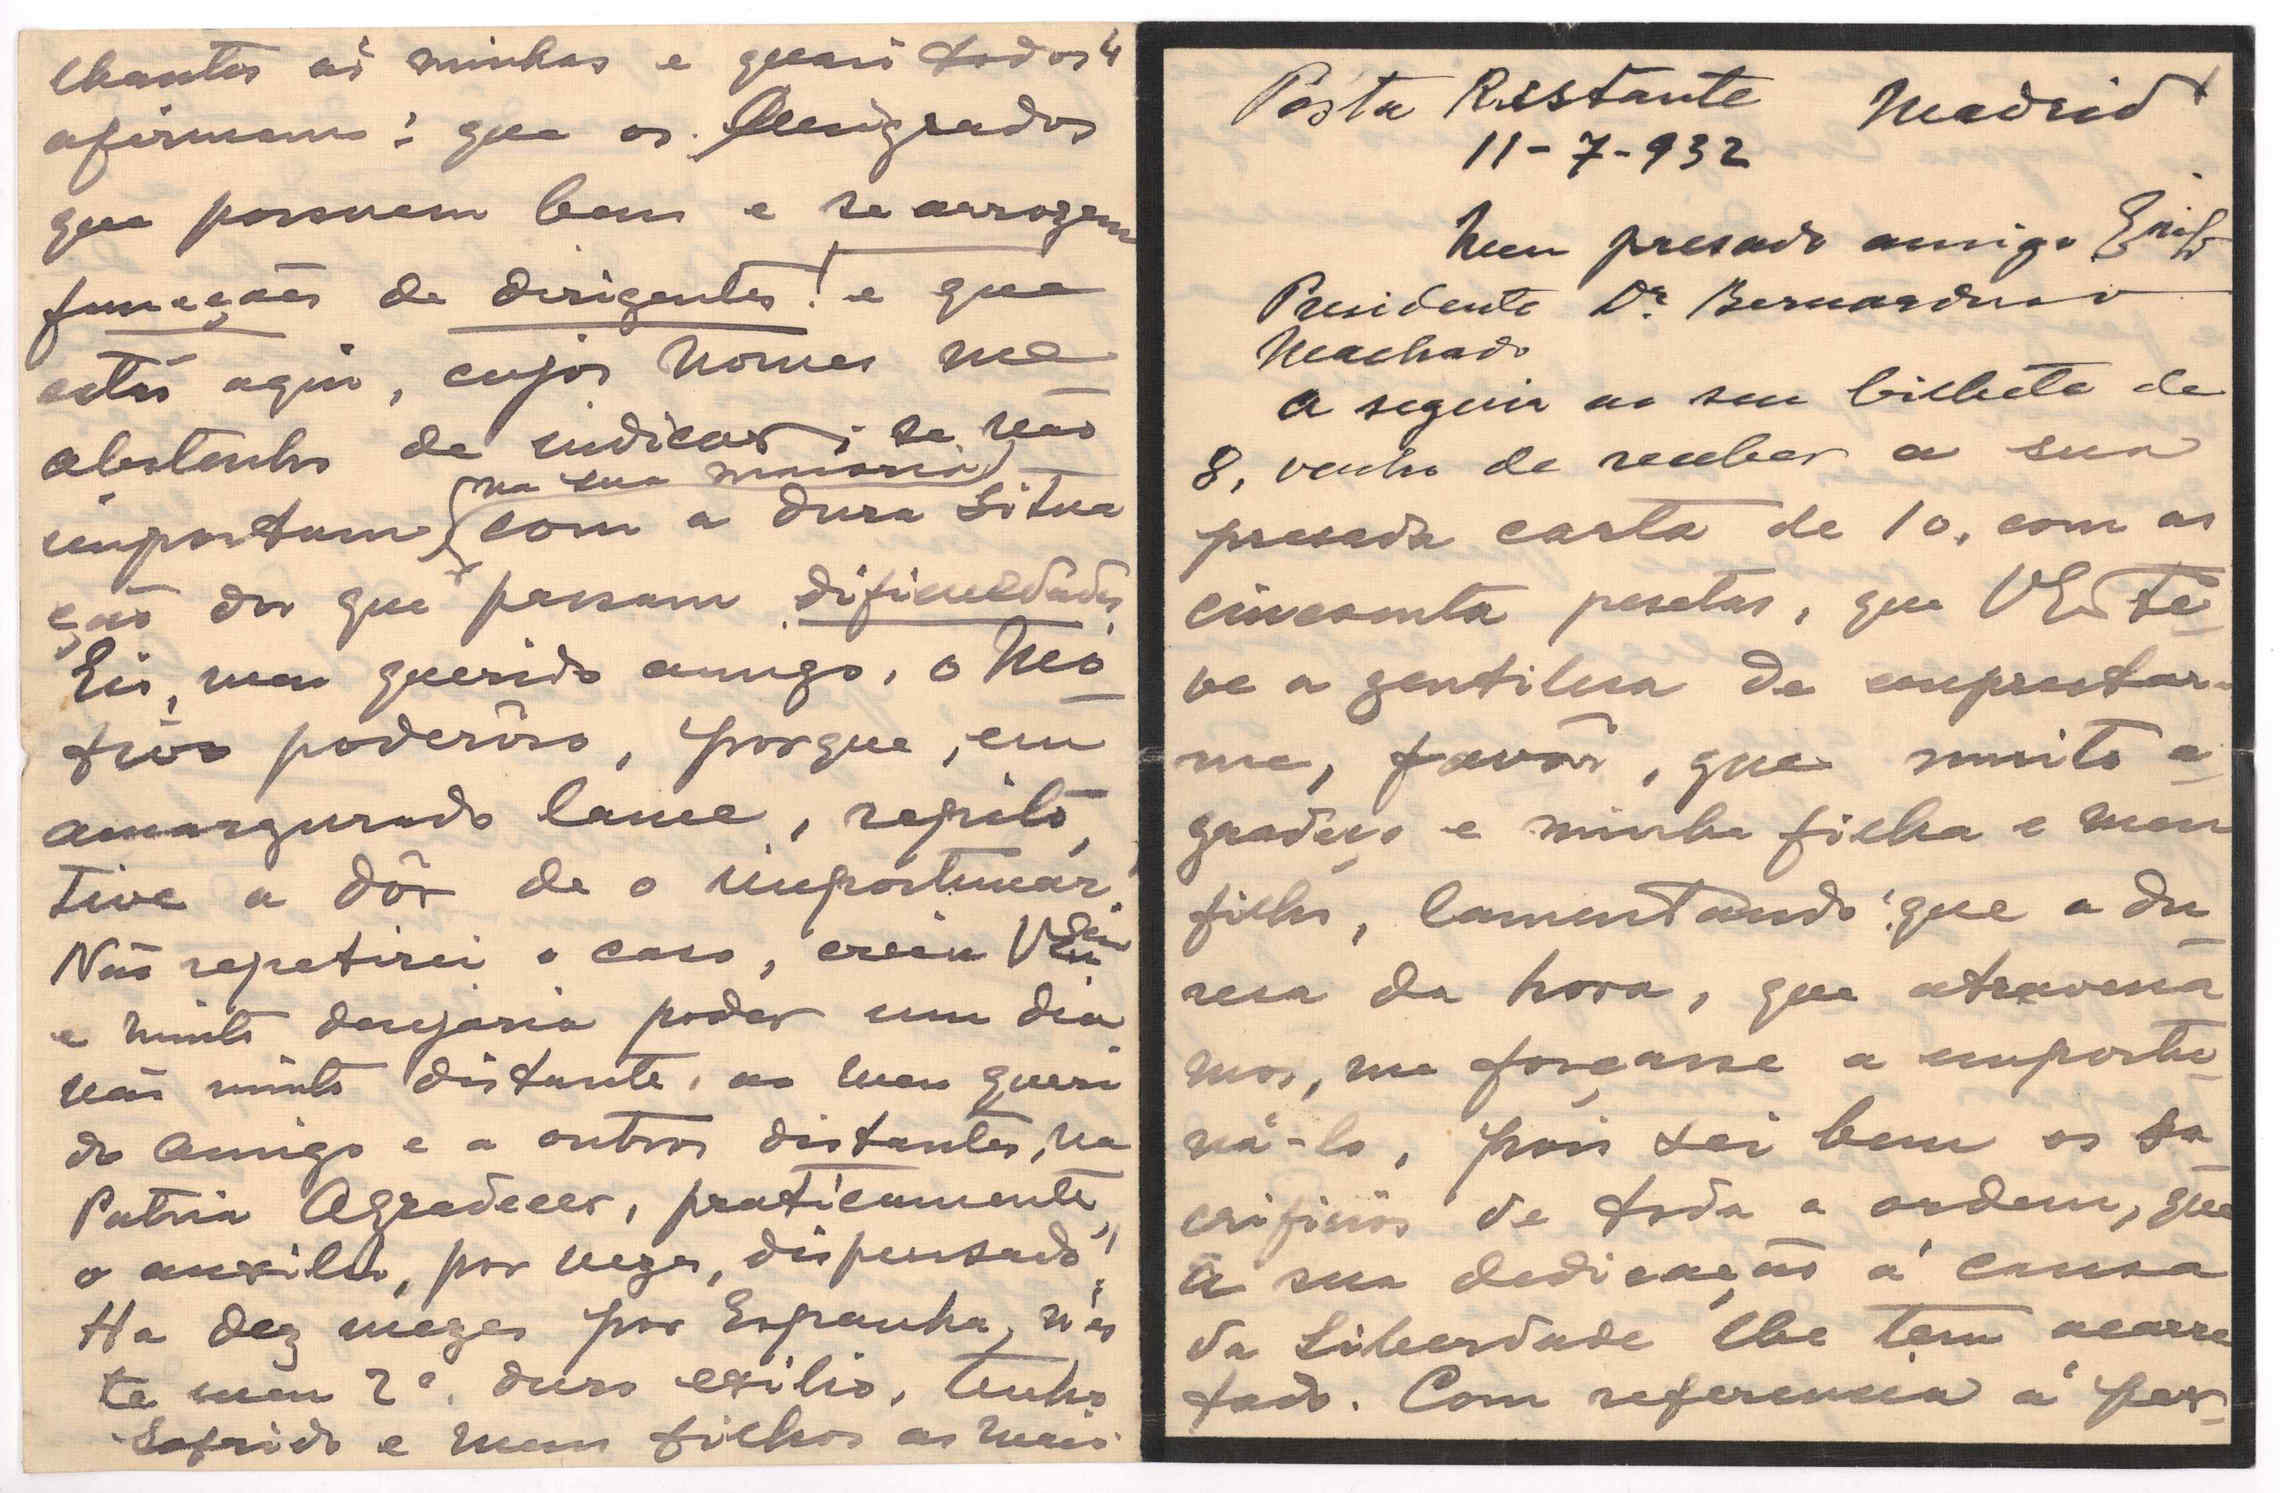 Posta Restante Madrid
11-7-932
Meu presado amigo
Presidente Dr. Bernardino
Machado
A seguir ao seu bilhete de
8, venho de receber a sua
presada carta de 10, com as
cincoenta pesetas, que VExª te-
ve a gentilesa de emprestar-
me, favôr, que muito a-
gradeço e minha filha e meu
filho, lamentando: que a du-
resa da hora, que atravessa-
mos, me forçasse a importu-
ná-lo, pois sei bem os sa-
crificios de toda a ordem, que
a sua dedicação á causa
da Liberdade lhe tem acarre
tado. Com referencia á per-
lhantes ás minhas e quasi todos 4
afirmam: que os Emigrados
que possuem bens e se arrogam
funcções de dirigentes! e que
estão aqui, cujos nomes me
abstenho de indicar, se não
importam (na sua maioria)
com a dura situa
ção dos que passam dificuldades.
Eis, meu querido amigo, o mo-
tivo poderôso, porque, em
amargurado lance, repito,
tive a dôr de o importunar.
Não repetirei o caso, creia VExª
e muito desejaria poder um dia
não muito distante, ao meu queri
do amigo e a outros distantes, na
Patria Agradecer, praticamente,
o auxilio, por vezes, dispensado!
Ha dez mezes por Espanha, n'es
te meu 2º. duro exilio, tenho
sofrido e meus filhos as mais